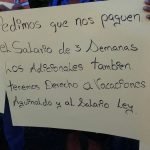 Pedimos que nos paguen
el Salario de 3 Semanas
Los Adicionales tambien
tenemos Derecho a Vacaciones
Aguinaldo y al Salario Ley